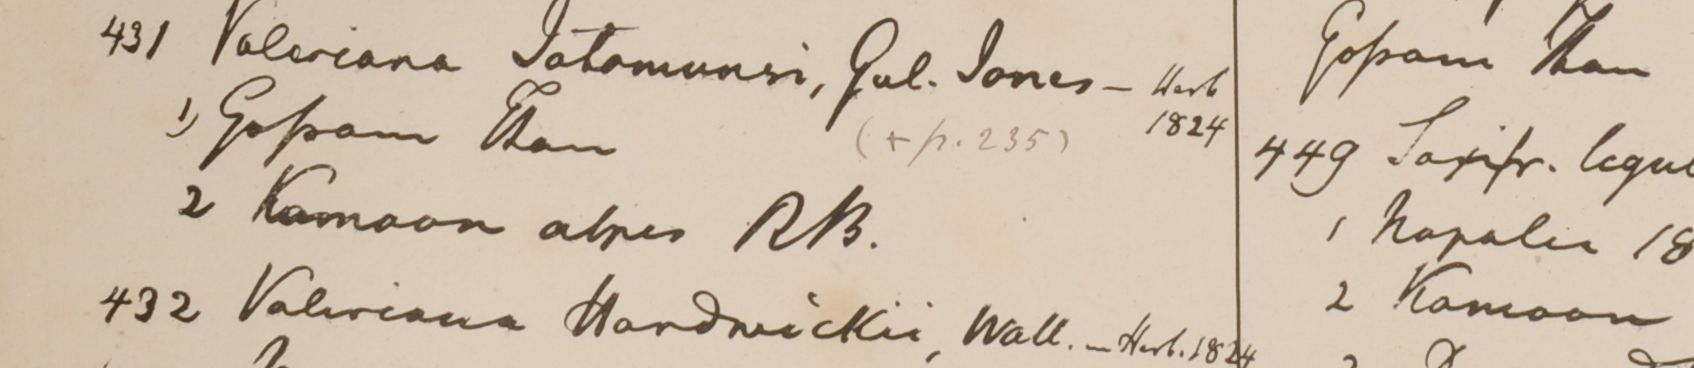 431 Valeriana Jatamunsi, Gul. Jones – Herb
1824
1) Gossam Than
(+ p. 235)
2 Kamaon alpes RB.
432 Valeriana Hardwickii, Wall. – Herb. 1824
Gossam Than
449 Saxifr. ligul
1 Napalia 18
2 Kamaon